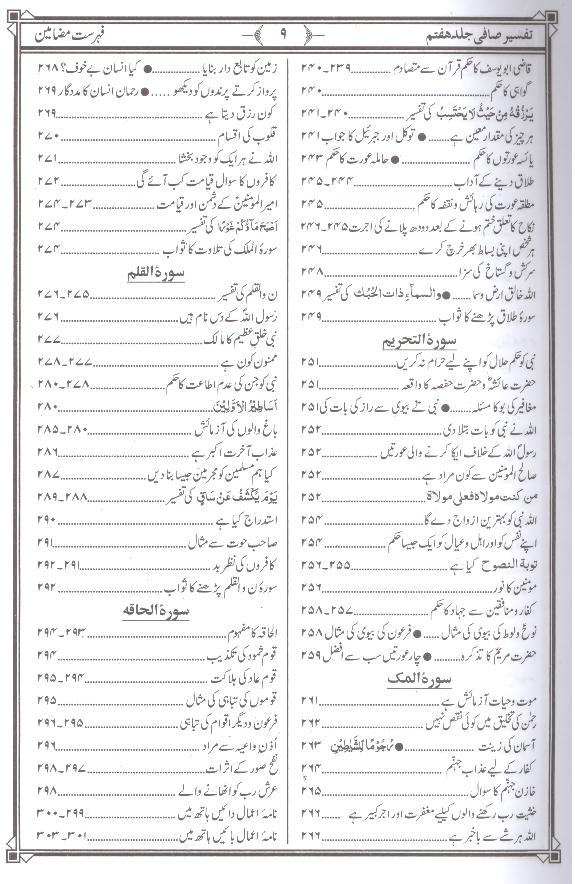 تفسیر صافی جلد ہفتم ۹ فہرست مضامین
قاضی ابو یوسف کا حکم قرآن سے متصادم ۲۳۹۔۲۴۰
گواہی کا حکم ۲۴۰
يَرْزُقْهُ مِنْ حَيْثُ لَا يَحْتَسِبُ کی تفسیر ۲۴۰۔۲۴۱
ہر چیز کی مقدار معین ہے ● توکل اور جبرئیل کا جواب ۲۴۱
یائسہ عورتوں کا حکم ● حاملہ عورت کا حکم ۲۴۳
طلاق دینے کے آداب ۲۴۴۔۲۴۵
مطلقہ عورت کی رہائش و نفقہ کا حکم ۲۴۵
نکاح کا تعلق ختم ہونے کے بعد دودھ پلانے کی اجرت ۲۴۵۔۲۴۶
ہر شخص اپنی بساط بھر خرچ کرے ۲۴۶
سرکش و گستاخ کی سزا ۲۴۸
اللہ خالق ارض و سما ● والسماء ذات الحبك کی تفسیر ۲۴۹
سورۂ طلاق پڑھنے کا ثواب ۲۴۹
سورة التحريم
نبی کو حکم حلال کو اپنے لیے حرام نہ کریں ۲۵۱
حضرت عائشہؓ و حضرت حفصہ کا واقعہ ۲۵۱
مغافیر کی بو کا مسئلہ ● نبی نے بیوی سے راز کی بات کی ۲۵۱
اللہ نے نبی کو بات بتلا دی ۲۵۲
رسول اللہ کے خلاف ایکا کرنے والی عورتیں ۲۵۲
صالح المومنین سے کون مراد ہے ۲۵۲
من كنت مولاه فعلى مولاه ۲۵۲
اللہ نبی کو بہترین ازواج دے گا ۲۵۴
اپنے نفس کو اور اہل و عیال کو ایک جیسا حکم ۲۵۴
توبة النصوح کیا ہے ۲۵۵۔۲۵۶
مومنین کا نور ۲۵۶
کفار و منافقین سے جہاد کا حکم ۲۵۷۔۲۵۸
نوحؑ و لوطؑ کی بیوی کی مثال ● فرعون کی بیوی کی مثال ۲۵۸
حضرت مریمؑ کا تذکرہ ● چار عورتیں سب سے افضل ۲۵۹
سورة الملک
موت و حیات آزمائش ہے ۲۶۱
رحمٰن کی تخلیق میں کوئی نقص نہیں ۲۶۲
آسمان کی زینت ● رُجُوْمًا لِّلشَّيٰطِيْنِ ۲۶۳
کفار کے لیے عذاب جہنم ۲۶۴
خازن جہنم کا سوال ۲۶۵
خشیت رب رکھنے والوں کیلئے مغفرت اور اجر کبیر ہے ۲۶۶
اللہ ہر شے سے باخبر ہے ۲۶۶
زمین کو تابع دار بنایا ● کیا انسان بے خوف؟ ۲۶۸
پرواز کرتے پرندوں کو دیکھو ● رحمان انسان کا مددگار ۲۶۹
کون رزق دیتا ہے ۲۶۹
قلوب کی اقسام ۲۷۰
اللہ نے ہر ایک کو وجود بخشا ۲۷۱
کافروں کا سوال قیامت کب آئے گی ۲۷۲
امیر المومنینؑ کے دشمن اور قیامت ۲۷۳۔۲۷۴
اَصْبَحَ مَآؤُكُمْ غَوْرًا کی تفسیر ۲۷۴
سورۂ الملک کی تلاوت کا ثواب ۲۷۴
سورة القلم
ن والقلم کی تفسیر ۲۷۵۔۲۷۶
رسول اللہؐ کے دس نام ہیں ۲۷۶
نبی خلق عظیم کا مالک ۲۷۷
ممنون کون ہے ۲۷۷۔۲۷۸
نبی کو جن کی عدم اطاعت کا حکم ۲۷۸۔۲۸۰
اَسَاطِيْرُ الْاَوَّلِيْنَ ۲۸۰
باغ والوں کی آزمائش ۲۸۰۔۲۸۵
عذاب آخرت اکبر ہے ۲۸۶
کیا ہم مسلمین کو مجرمین جیسا بنا دیں ۲۸۷
يَوْمَ يُكْشَفُ عَنْ سَاقٍ کی تفسیر ۲۸۸۔۲۸۹
استدراج کیا ہے ۲۹۰
صاحب حوت سے مثال ۲۹۱
کافروں کی نظر بد ۲۹۱۔۲۹۲
سورۂ ن والقلم پڑھنے کا ثواب ۲۹۲
سورة الحاقه
الحاقہ کا مفہوم ۲۹۳۔۲۹۴
قوم ثمود کی تکذیب ۲۹۴
قوم عاد کی ہلاکت ۲۹۴۔۲۹۵
قوموں کی تباہی کی مثال ۲۹۵
فرعون و دیگر اقوام کی تباہی ۲۹۵۔۲۹۶
اذن واعیہ سے مراد ۲۹۶
نفخ صور کے اثرات ۲۹۷۔۲۹۸
عرش رب کو اٹھانے والے ۲۹۸
نامۂ اعمال دائیں ہاتھ میں ۲۹۹۔۳۰۰
نامۂ اعمال بائیں ہاتھ میں ۳۰۱۔۳۰۳